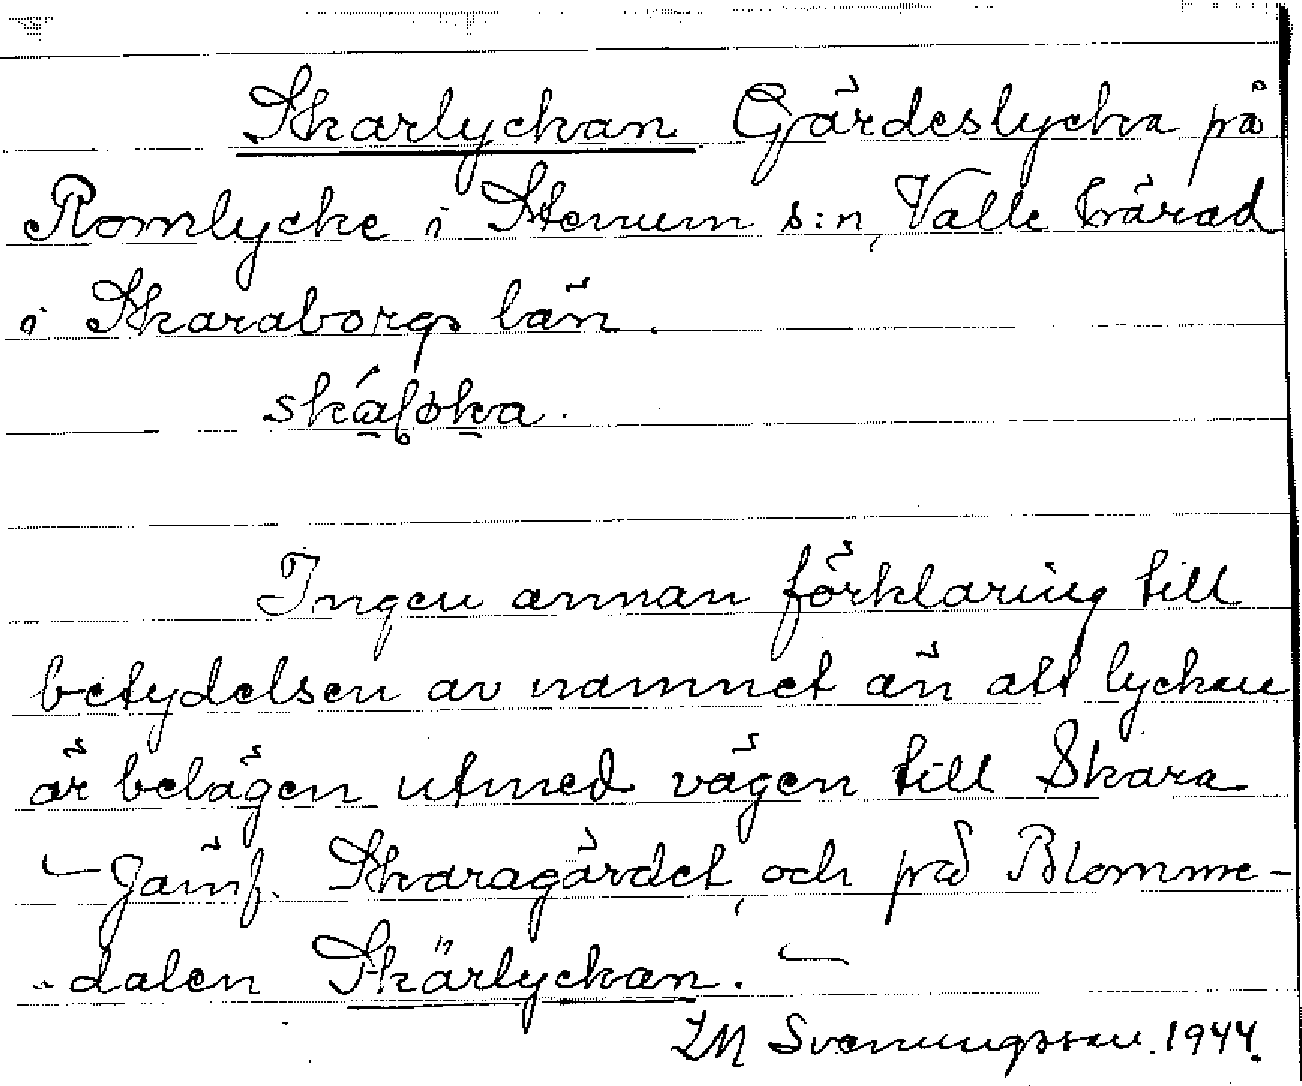 Skarlyckan Gärdeslycka på
Romlycke i Stenum s:n, Valle härad
i Skaraborgs län.
Ingen annan förklaring till
betydelsen av namnet än att lyckan
är belägen utmed vägen till Skara
– Jämf. Skaragärdet, och på Blomme-
dalen Skärlyckan. –
Svenungsson. 1944.